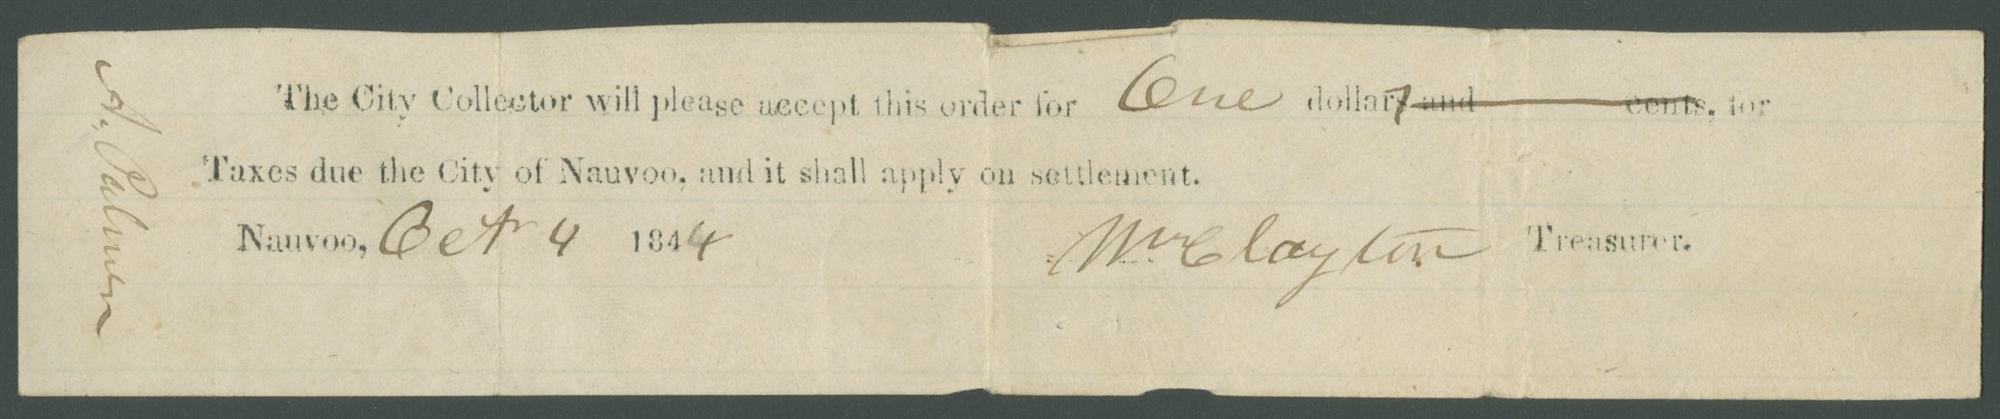 The City Collector will please accept this order for One dollars and cents, for
Taxes due the City of Nauvoo, and it shall apply on settlement.
Nauvoo, Oct 4 1844 Wm Clayton Treasurer.
A. Palmer